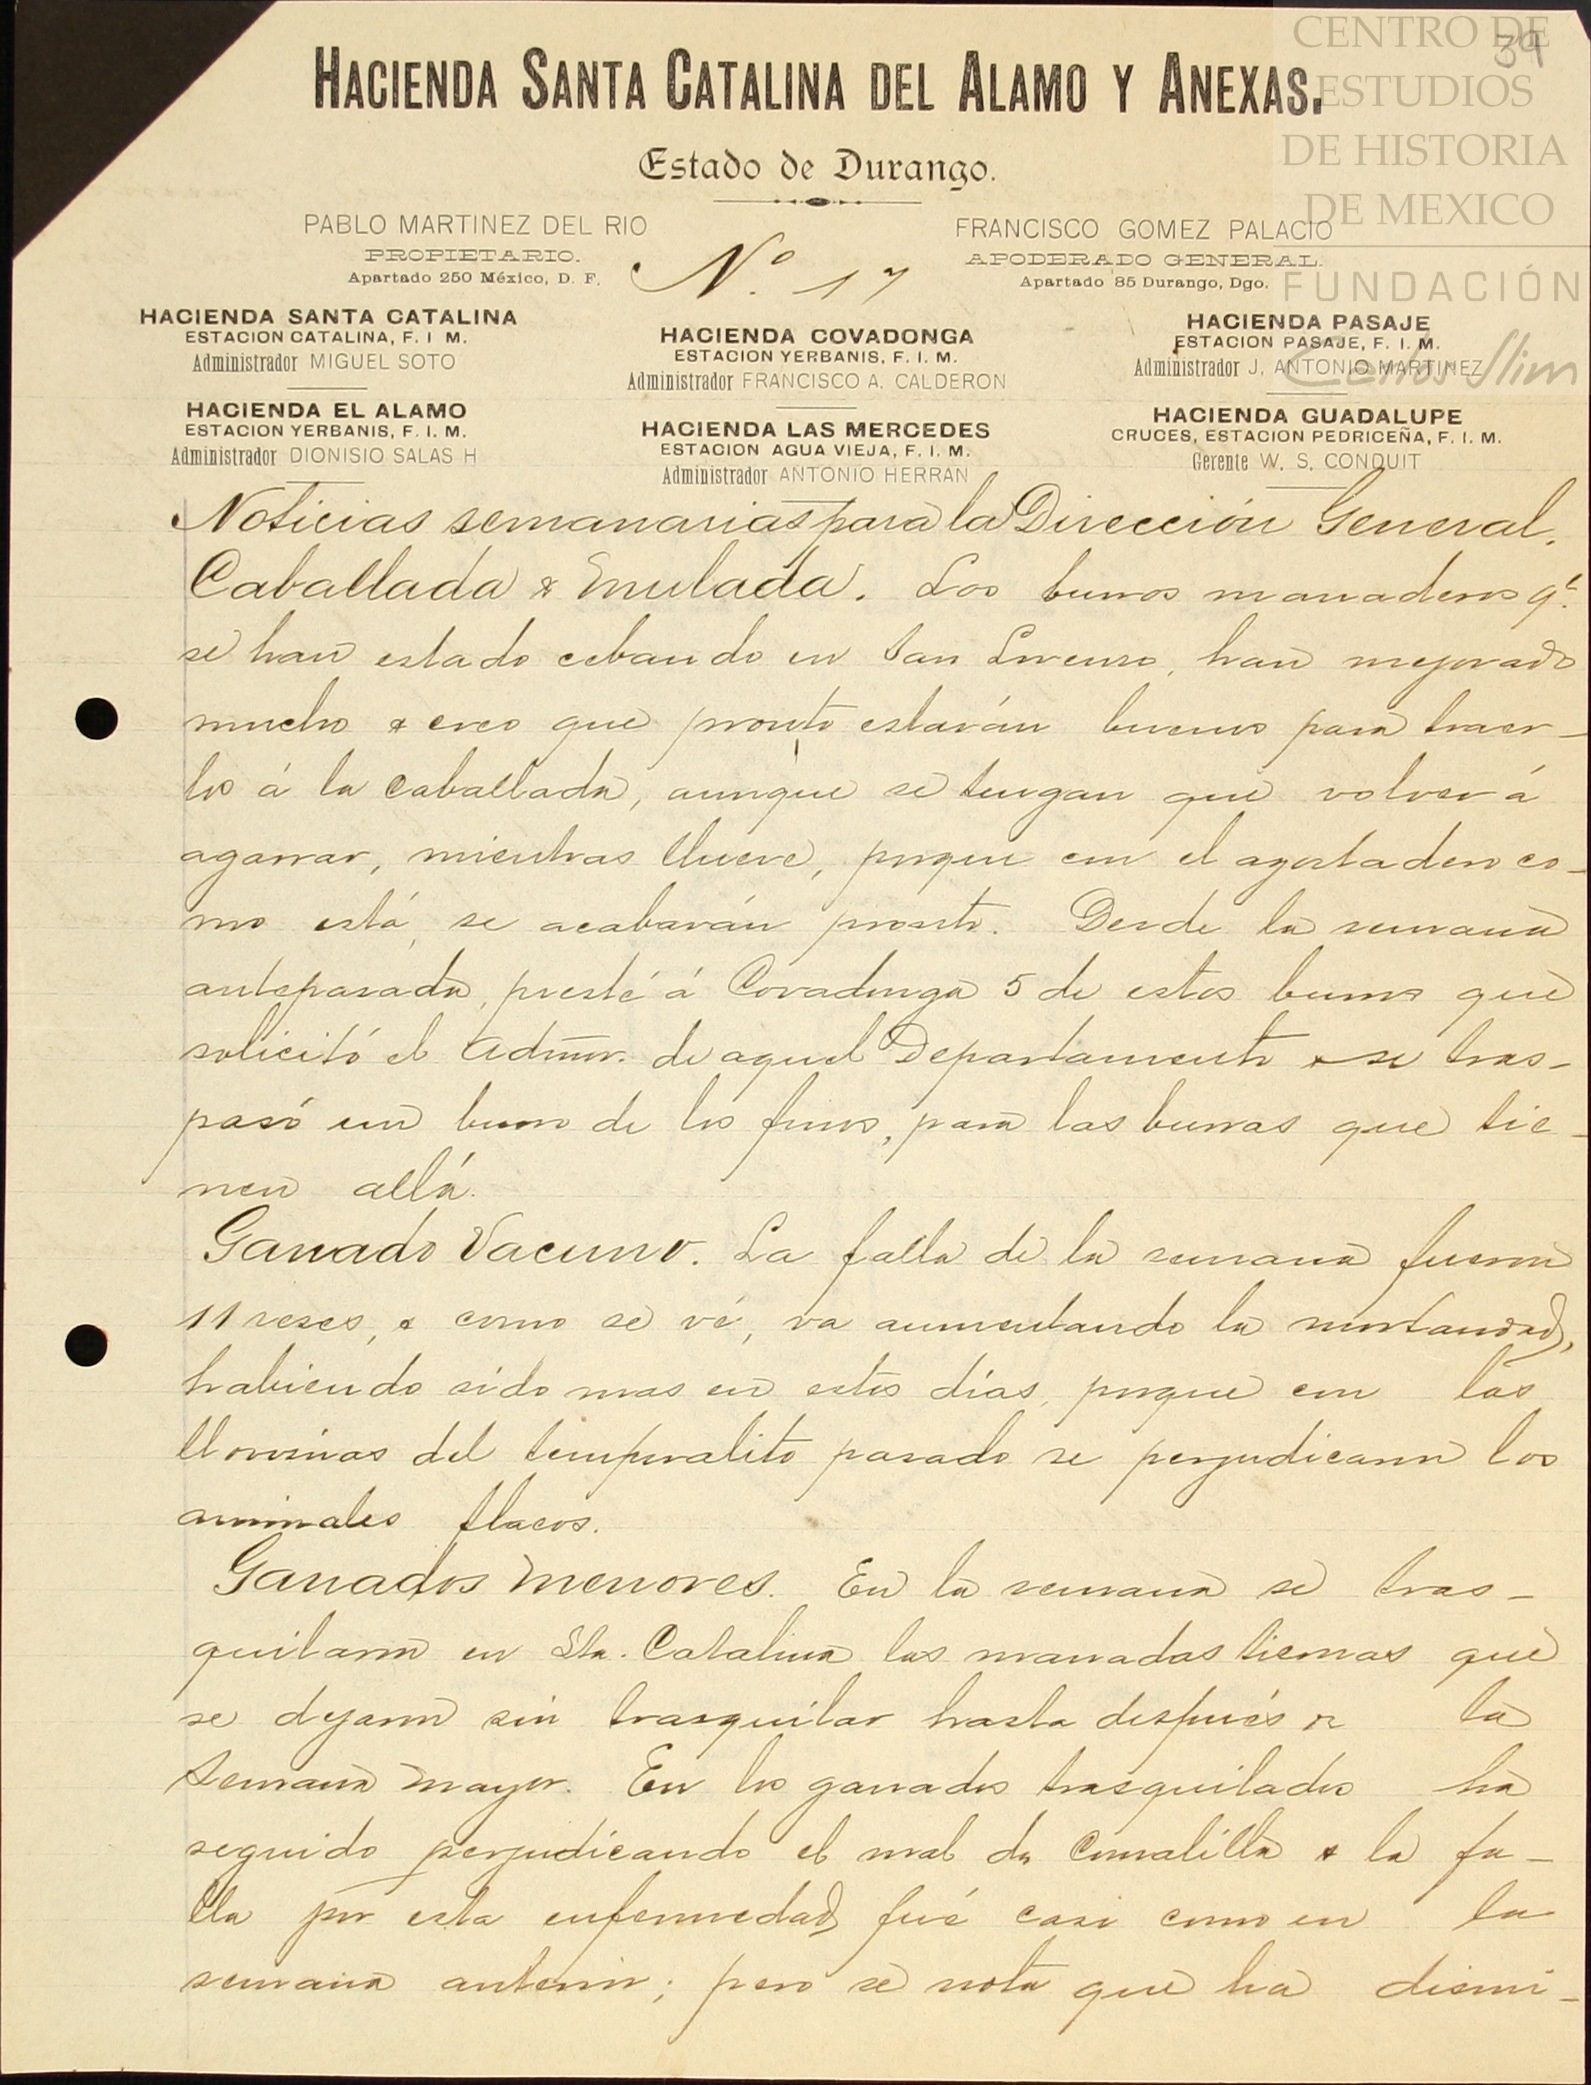 CENTRO DE
ESTUDIOS
DE HISTORIA
DE MEXICO
FUNDACIÓN
Carlos Slim
39
HACIENDA SANTA CATALINA DEL ALAMO Y ANEXAS.
Estado de Durango.
PABLO MARTINEZ DEL RIO
PROPIETARIO.
Apartado 250 México, D. F.
Nº. 17
FRANCISCO GOMEZ PALACIO
APODERADO GENERAL.
Apartado 85 Durango, Dgo.
HACIENDA SANTA CATALINA
ESTACION CATALINA, F. I M.
Administrador MIGUEL SOTO
HACIENDA EL ALAMO
ESTACION YERBANIS, F. I. M.
Administrador DIONISIO SALAS H
HACIENDA COVADONGA
ESTACION YERBANIS, F. I. M.
Administrador FRANCISCO A. CALDERON
HACIENDA LAS MERCEDES
ESTACION AGUA VIEJA, F. I. M.
Administrador ANTONIO HERRAN
HACIENDA PASAJE
ESTACION PASAJE, F. I. M.
Administrador J. ANTONIO MARTINEZ
HACIENDA GUADALUPE
CRUCES, ESTACION PEDRICEÑA, F. I. M.
Gerente W. S. CONDUIT
Noticias semanarias para la Dirección General.
Caballada & Mulada. Los burros manaderos q.e
se han estado cebando en San Lorenzo, han mejorado
mucho & creo que pronto estarán buenos para traer-
los á la caballada, aunque se tengan que volver á
agarrar, mientras llueve, porque con el agostadero co-
mo está, se acabarán pronto. Desde la semana
antepasada, presté á Covadonga 5 de estos burros que
solicitó el Admor. de aquel Departamento & se tras-
pasó un burro de los finos, para las burras que tie-
nen allá.
Ganado Vacuno. La falla de la semana fueron
11 reses, & como se vé, va aumentando la mortandad,
habiendo sido mas en estos días, porque con las
lloviznas del temporalito pasado se perjudicaron los
animales flacos.
Ganados Menores. En la semana se tras-
quilaron en Sta. Catalina las manadas tiernas que
se dejaron sin trasquilar hasta después de la
Semana Mayor. En los ganados trasquilados ha
seguido perjudicando el mal de Comalilla & la fa-
lla por esta enfermedad, fué casi como en la
semana anterior; pero se nota que ha dismi-